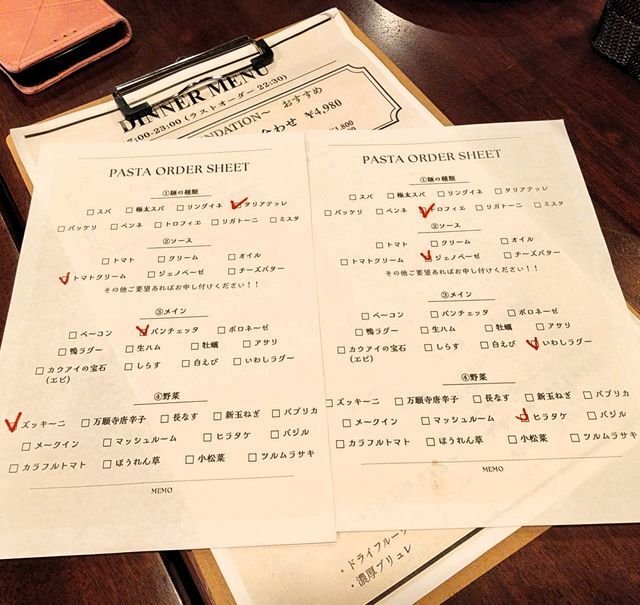 DINNER MENU
7:00-23:00 (ラストオーダー 22:30)
NDATION～ おすすめ
わせ ¥4,980
¥1,800
PASTA ORDER SHEET
①麺の種類
□スパ □極太スパ □リングイネ □タリアテッレ
□パッケリ □ペンネ □トロフィエ □リガトーニ □ミスタ
②ソース
□トマト □クリーム □オイル
□トマトクリーム □ジェノベーゼ □チーズバター
その他ご要望あればお申し付けください！！
③メイン
□ベーコン □パンチェッタ □ボロネーゼ
□鴨ラグー □生ハム □牡蠣 □アサリ
□カウアイの宝石 □しらす □白えび □いわしラグー
(エビ)
④野菜
□ズッキーニ □万願寺唐辛子 □長なす □新玉ねぎ □パプリカ
□メークイン □マッシュルーム □ヒラタケ □バジル
□カラフルトマト □ほうれん草 □小松菜 □ツルムラサキ
MEMO
PASTA ORDER SHEET
①麺の種類
□スパ □極太スパ □リングイネ □タリアテッレ
□パッケリ □ペンネ □トロフィエ □リガトーニ □ミスタ
②ソース
□トマト □クリーム □オイル
□トマトクリーム □ジェノベーゼ □チーズバター
その他ご要望あればお申し付けください！！
③メイン
□ベーコン □パンチェッタ □ボロネーゼ
□鴨ラグー □生ハム □牡蠣 □アサリ
□カウアイの宝石 □しらす □白えび □いわしラグー
(エビ)
④野菜
□ズッキーニ □万願寺唐辛子 □長なす □新玉ねぎ □パプリカ
□メークイン □マッシュルーム □ヒラタケ □バジル
□カラフルトマト □ほうれん草 □小松菜 □ツルムラサキ
MEMO
・ドライフルーツ
・濃厚ブリュレ